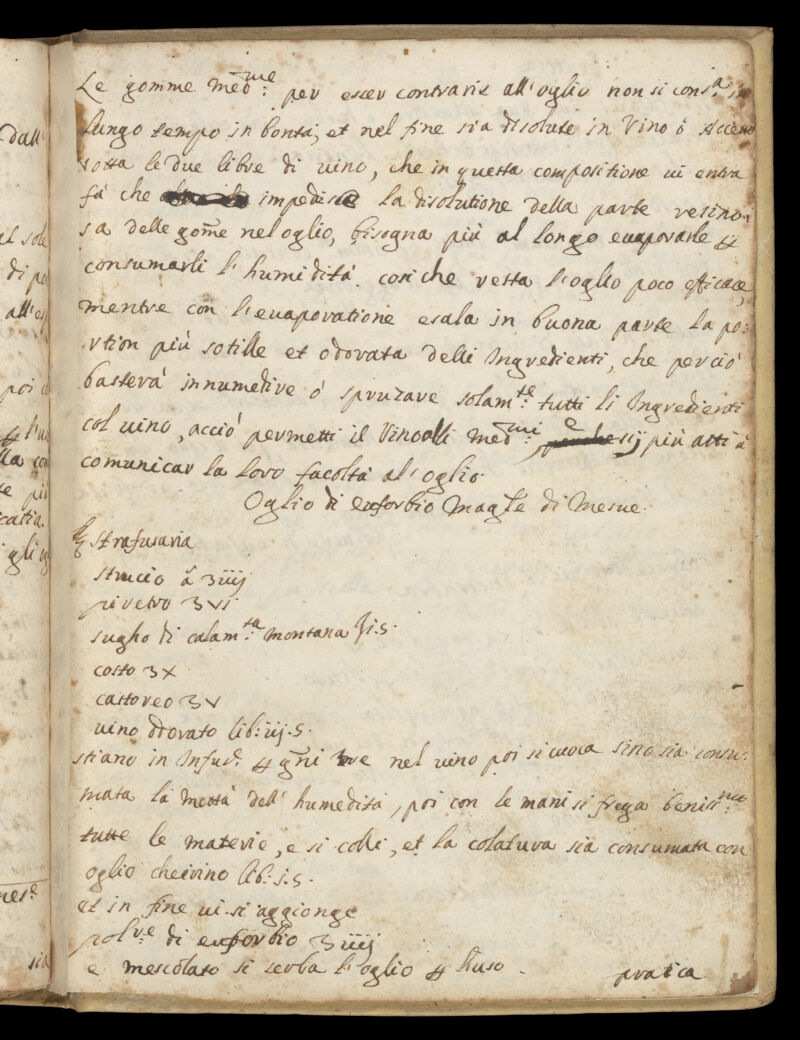 Le gomme med:me per esser contrarie all'oglio non si cons:a in
lungo tempo in bontà, et nel fine sia disolute in Vino ò Acceto
sotta le due libre di vino, che in questa compositione vi entra
fà che impedisce la disolutione della parte resino:
sa delle gom̄e nel oglio, bisogna più al longo evaporarle ꝑ
consumarli l'humidità. cosi che resta l'oglio poco efficace,
mentre con l'evaporatione esala in buona parte la po:
rtion più sotille et odorata delli Ingredienti, che perciò
basterà innumedire ò spruzare solam:te tutti li Ingredienti
col vino, acciò permetti il Vino alli med:mi e sij più atti à
comunicar la loro facoltà al'oglio.
Oglio di euforbio Mag:re di Mesue.
℞ strafusaria
strucio ā ʒ iiij
piretro ʒ vi
sugho di calam:ta montana ℔ i. s.
costo ʒ x
castoreo ʒ v
vino odorato lib: iij. s.
stiano in Infus: ꝑ gni tre nel vino poi si cuoca sino sia consu:
mata la mettà dell'humedità, poi con le mani si frega beniss:mo
tutte le materie, e si colli, et la colatura sia consumata con
oglio cheirino lib: i. s.
et in fine vi si aggionge
polv:e di euforbio ʒ iiij
e mescolato si serba l'oglio ꝑ l'uso.
pratica